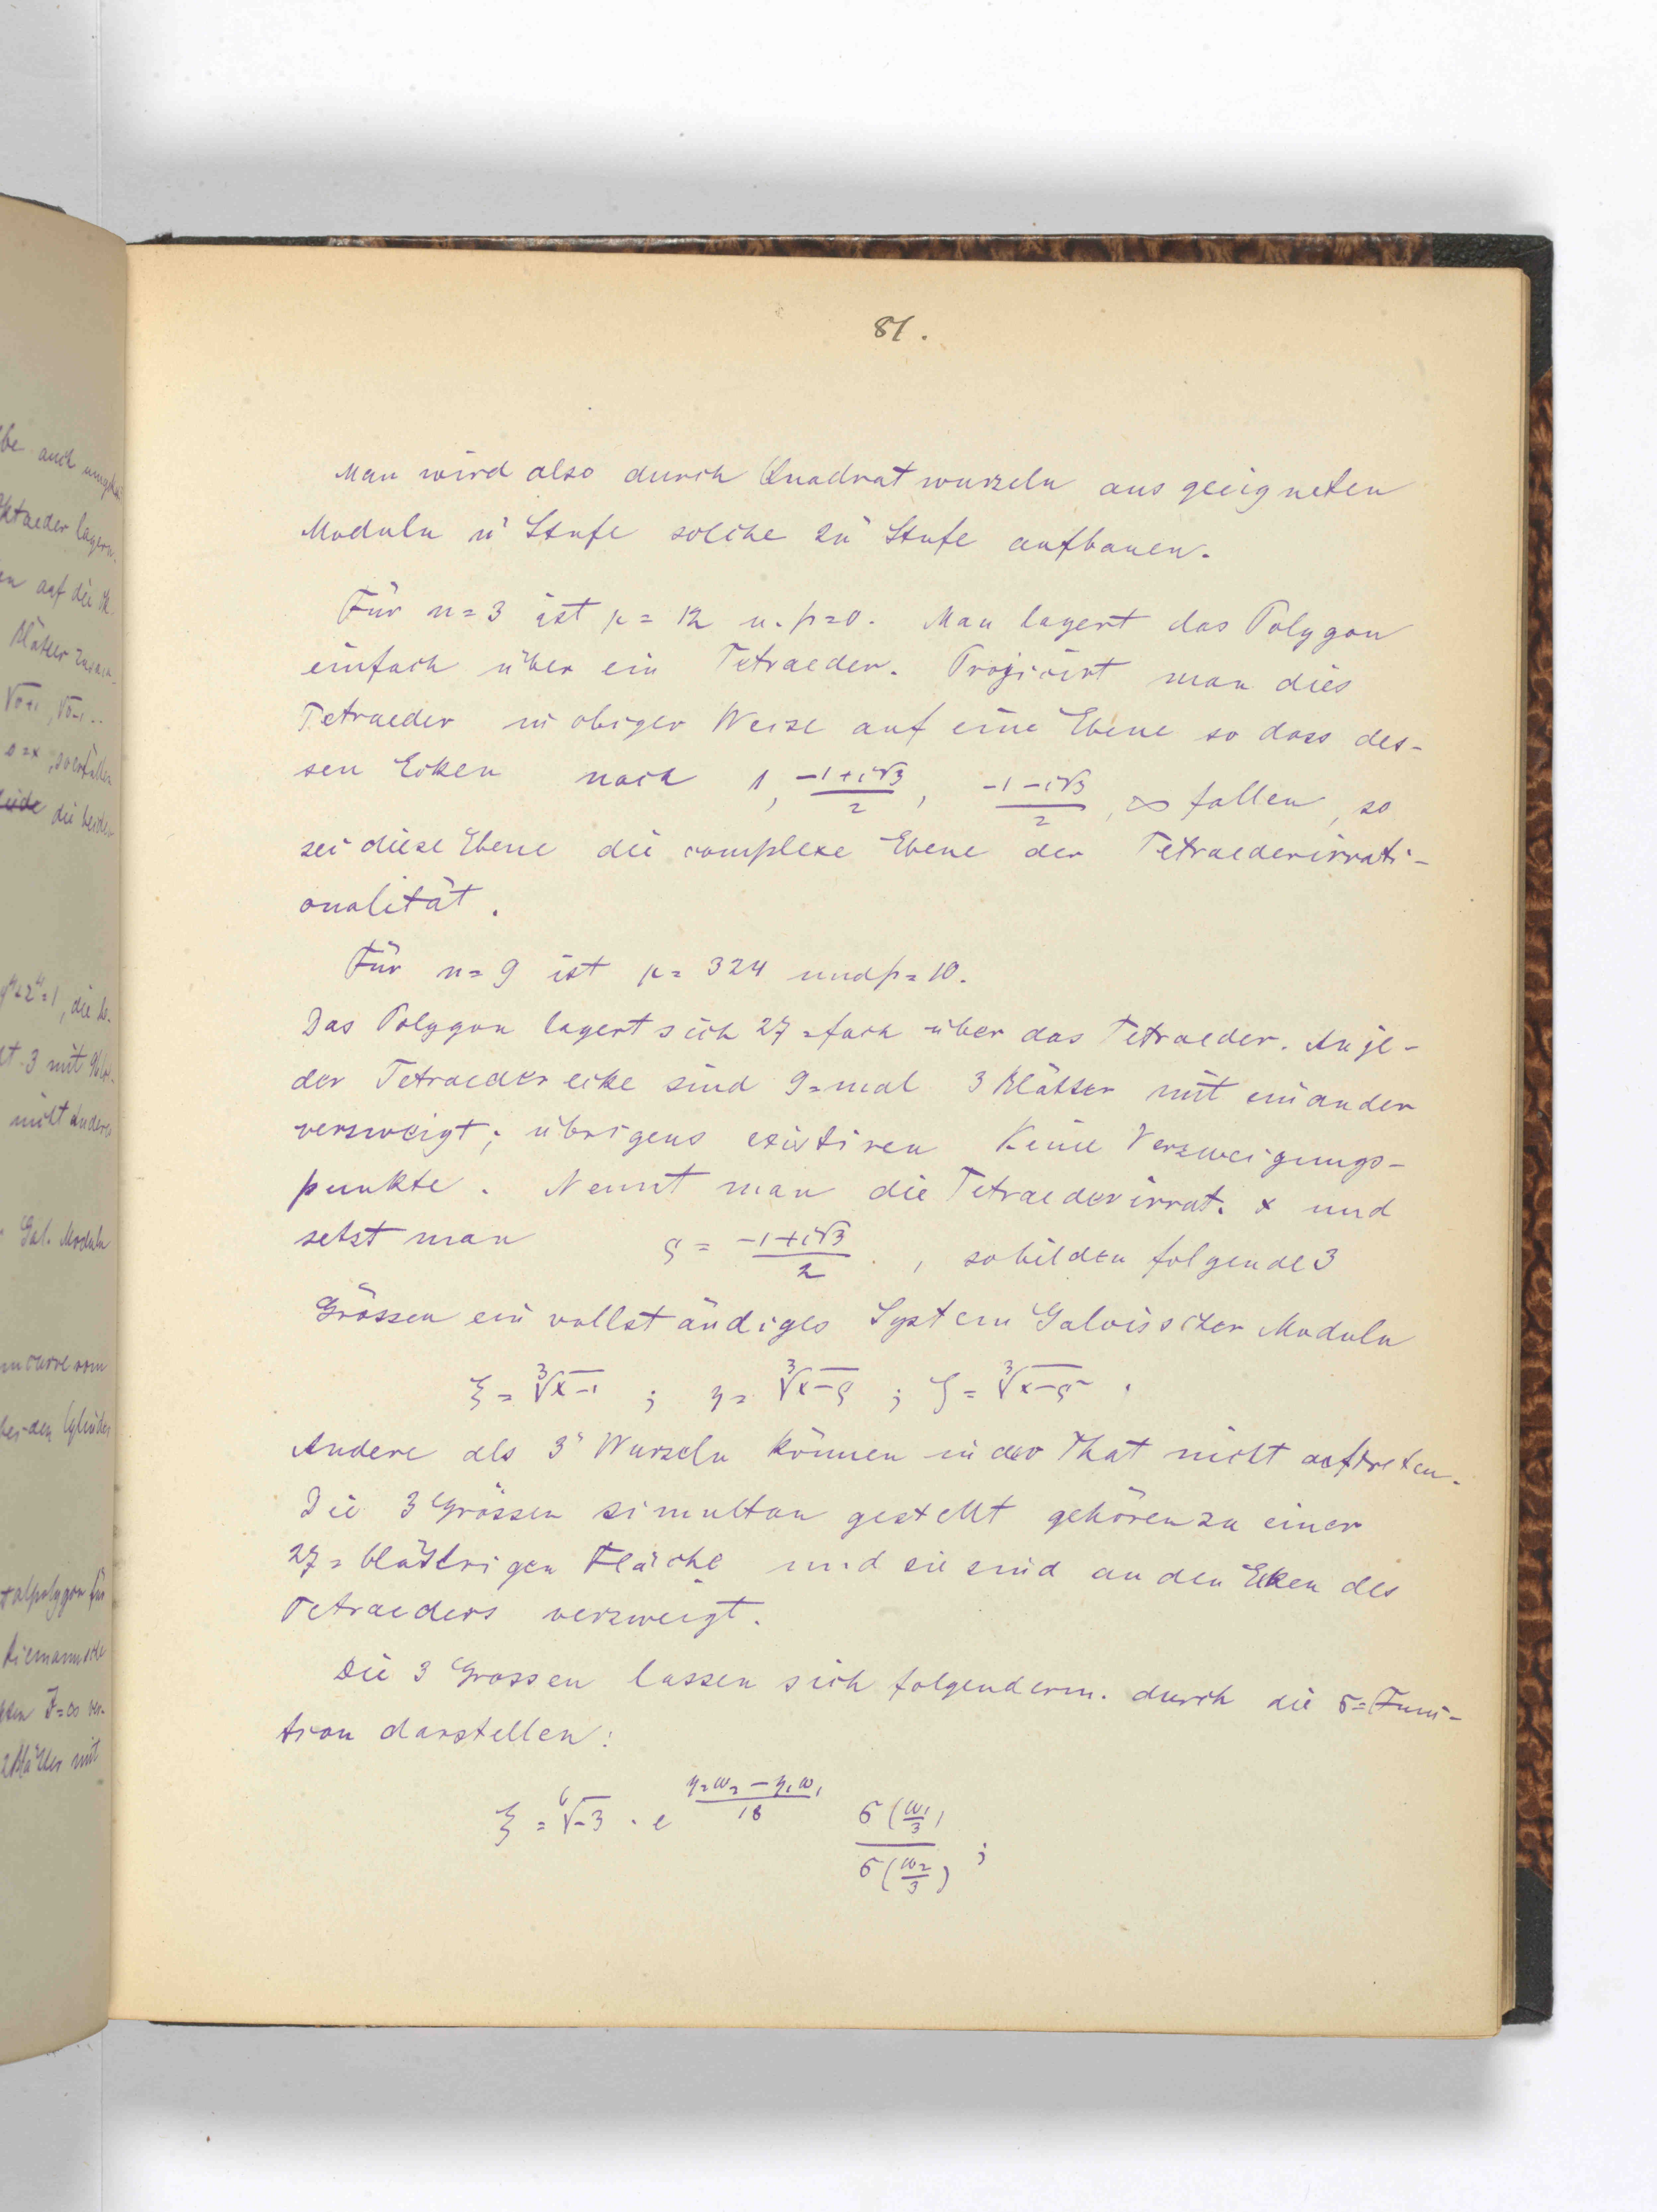 81.
Man wird also durch Quadratwurzeln aus geeigneten
Moduln n<sup>r</sup> Stufe solche 2n<sup>r</sup> Stufe aufbauen.
Für n=3 ist μ = 12 u. p=0. Man lagert das Polygon
einfach über ein Tetraeder. Projicirt man dies
Tetraeder in obiger Weise auf eine Ebene so dass des-
sen Ecken nach 1, (-1+i√3)/2, (-1-i√3)/2, ∞ fallen, so
sei diese Ebene die complexe Ebene der Tetraederirrati-
onalität.
Für n=9 ist μ= 324 und p=10.
Das Polygon lagert sich 27=fach über das Tetraeder. An je-
der Tetraederecke sind 9=mal 3 Blätter mit einander
verzweigt; übrigens existiren keine Verzweigungs-
punkte. Nennt man die Tetraederirrat. x und
setzt man ρ = (-1+i√3)/2 , so bilden folgende 3
Grössen ein vollständiges System Galoisscher Moduln
ξ = ∛(x-1) ; η = ∛(x-ρ) ; ζ = ∛(x-ρ²) .
Andere als 3<sup>te</sup> Wurzeln können in der That nicht auftreten.
Die 3 Grössen simultan gestellt gehören zu einer
27=blättrigen Fläche und sie sind an den Ecken des
Tetraeders verzweigt.
Die 3 Grossen lassen sich folgenderm. durch die σ=Func-
tion darstellen:
ξ = ⁶√-3 · e^((η₂ω₂ - η₁ω₁)/18) σ(ω₁/3)/σ(ω₂/3) ;
be auch
Oktaeder lagern.
auf die
Blätter
√σ+1, √σ-1 ..
σ=x, zerfallen
die beiden
=1, die
3 mit
nicht anders
Gal. Moduln
curve vom
den Cylinder
polygon für
Riemannsche
J=∞ ver-
Blätter mit